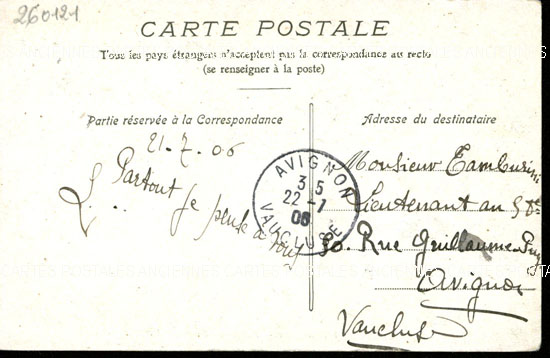 260121
CARTE POSTALE
Tous les pays étrangers n'acceptent pas la correspondance au recto
(se renseigner à la poste)
Partie réservée à la Correspondance
21-7-06
Partout
je pense à vous
L...
AVIGNON
3 5
22 -7
06
VAUCLUSE
Adresse du destinataire
Monsieur Tamburini
Lieutenant au
30. Rue Guillaume Puy
Avignon
Vaucluse
CARTES POSTALES ANCIENNES